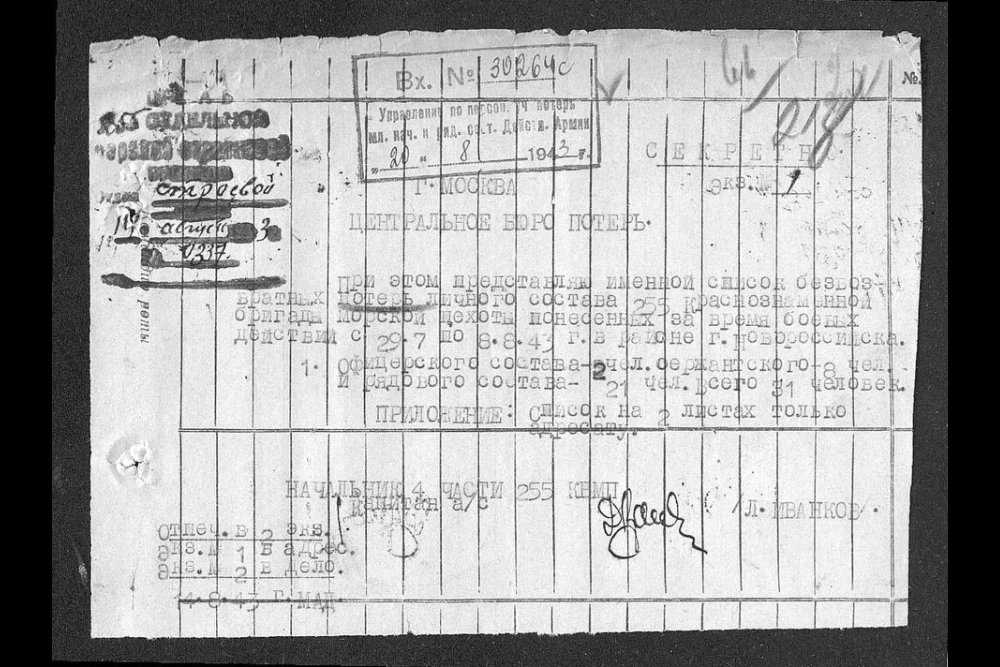 Вх. № 30264с
Управление по персон. уч. потерь
мл. нач. и ряд. сост. Действ. Армии
„20„ 8 1943 г.
ШТАБ
ОТДЕЛЬНОЕ
строевой
август 3
0337
№
СЕКРЕТНО.
Экз.№ 1
Г. МОСКВА
ЦЕНТРАЛЬНОЕ БЮРО ПОТЕРЬ.
При этом представляю именной список безвоз-
вратных потерь личного состава 255 Краснознаменной
бригады морской пехоты понесенных за время боевых
действий с 29.7 по 8.8.43 г. в районе г.Новороссийска.
1. Офицерского состава-2 чел.сержантского-8 чел.
и рядового состава- 21 чел.Всего 31 человек.
ПРИЛОЖЕНИЕ: Список на 2 листах только
адресату.
НАЧАЛЬНИК 4 ЧАСТИ 255 КБМП
Капитан а/с
/Л.ИВАНКОВ.
Отпеч.в 2 экз.
Экз.№ 1 в адрес.
Экз.№ 2 в дело.
14.8.43 г.МАД.